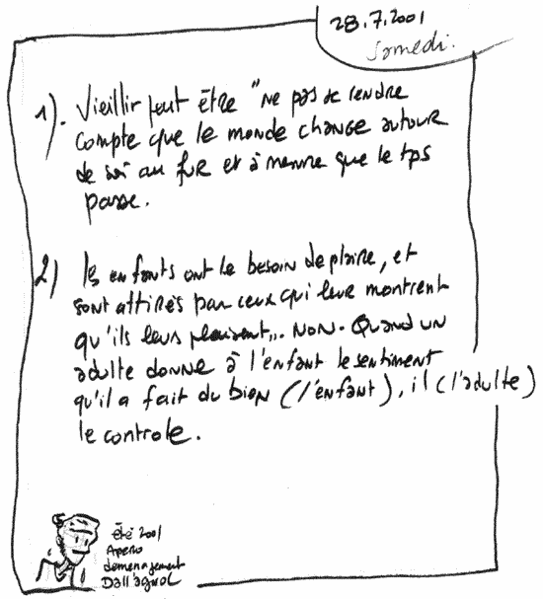 28.7.2001
samedi.
1). Vieillir peut être "ne pas se rendre
compte que le monde change autour
de soi au fur et à mesure que le tps
passe.
2) les enfants ont le besoin de plaire, et
sont attirés par ceux qui leur montrent
qu'ils leurs plaisent... NON. Quand un
adulte donne à l'enfant le sentiment
qu'il a fait du bien (l'enfant), il (l'adulte)
le controle.
été 2001
Apero
demenagement
Dall'agnol